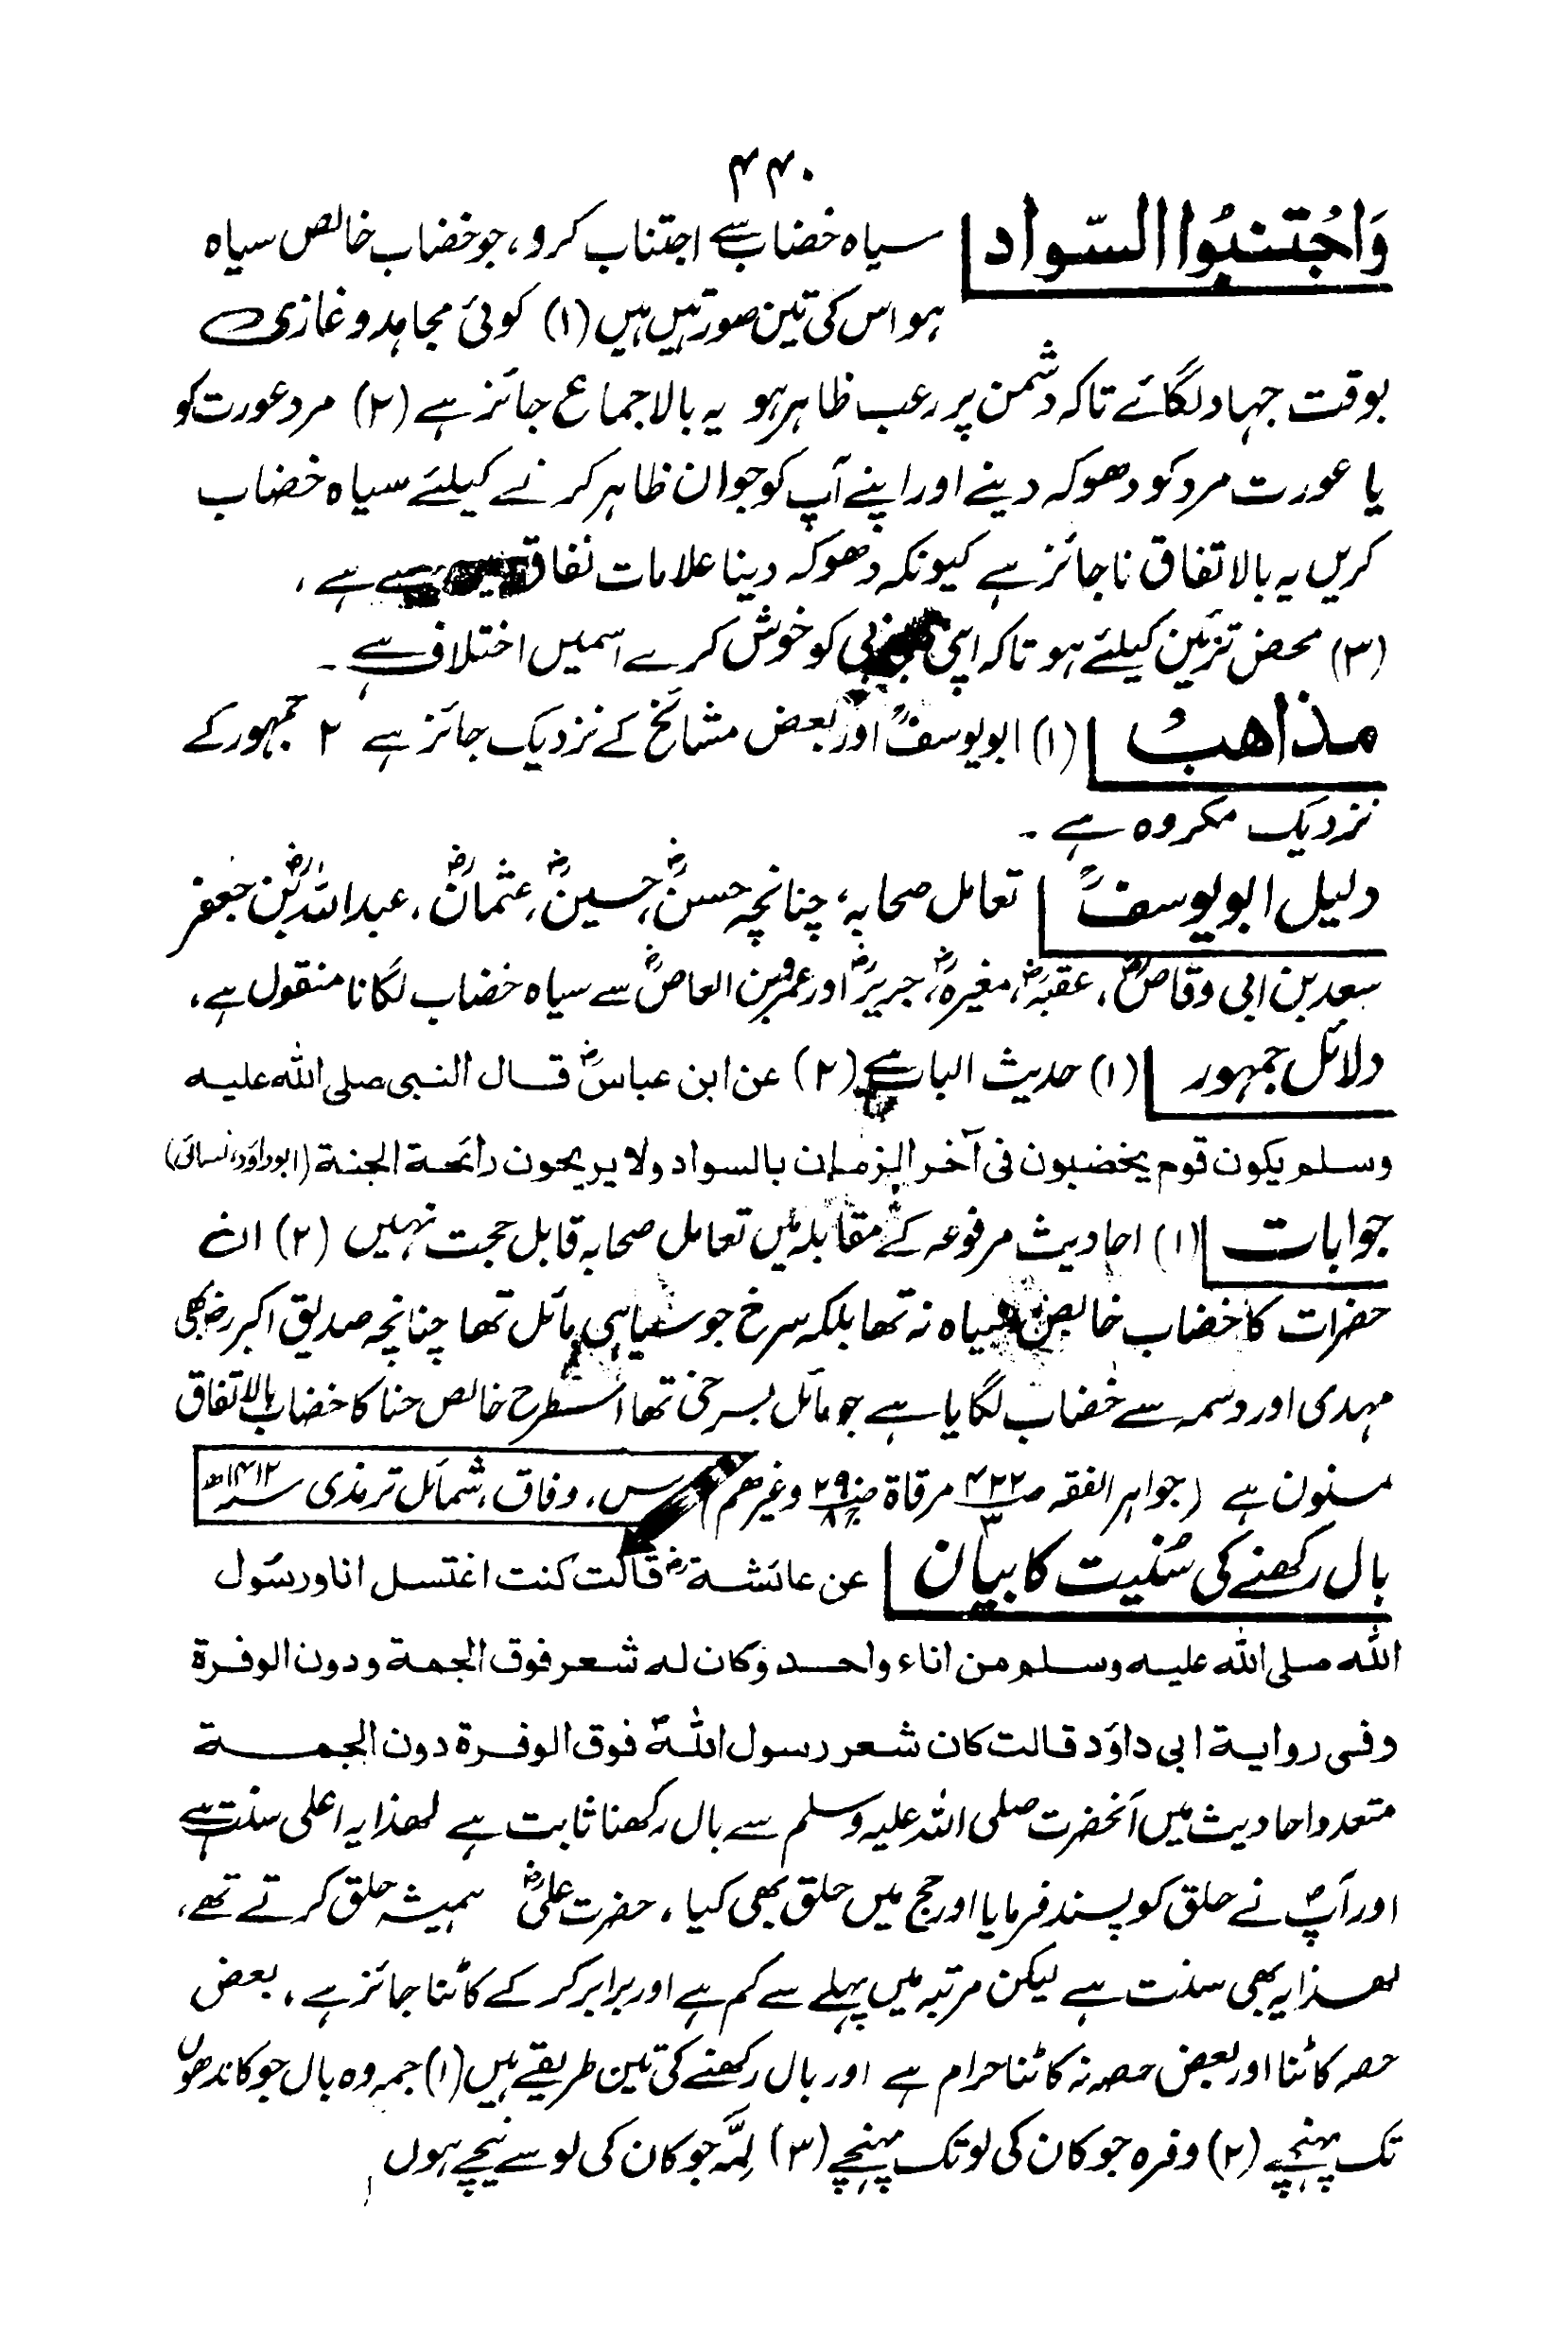 ۴۴۰
وَاجْتنبُوا السّواد سیاہ خضاب سے اجتناب کرو، جو خضاب خالص سیاہ
ہو اس کی تین صورتیں ہیں (۱) کوئی مجاہد و غازی
بوقت جہاد لگائے تاکہ دشمن پر رعب ظاہر ہو یہ بالاجماع جائز ہے (۲) مرد عورت کو
یا عورت مرد کو دھوکہ دینے اور اپنے آپ کو جوان ظاہر کرنے کیلئے سیاہ خضاب
کریں یہ بالاتفاق ناجائز ہے کیونکہ دھوکہ دینا علامات نفاق سے ہے ،
(۳) محض تزئین کیلئے ہو تاکہ اپنی کو خوش کرے اسمیں اختلاف ہے ۔
مذاهبُ (۱) ابویوسفؒ اور بعض مشائخ کے نزدیک جائز ہے ۲ جمہور کے
نزدیک مکروہ ہے ۔
دلیل ابویوسفؒ تعامل صحابہ، چنانچہ حسنؓ، حسینؓ، عثمانؓ، عبداللہؓ بن جعفر
سعد بن ابی وقاصؓ، عقبہؓ، مغیرہؓ، جریرؓ اور عمرو بن العاصؓ سے سیاہ خضاب لگانا منقول ہے،
دلائل جمہور (۱) حدیث الباب ہے (۲) عن ابن عباسؓ قال النبی صلی اللہ علیہ
وسلم یکون قوم یخضبون فی آخر الزمان بالسواد ولا یریحون رائحة الجنة (ابوداؤد، نسائی)
جوابات (۱) احادیث مرفوعہ کے مقابلہ میں تعامل صحابہ قابل حجت نہیں (۲) ان
حضرات کا خضاب خالص سیاہ نہ تھا بلکہ سرخ جو سیاہی مائل تھا چنانچہ صدیق اکبرؓ بھی
مہدی اور وسمہ سے خضاب لگایا ہے جو مائل بسرخی تھا اسطرح خالص حنا کا خضاب بالاتفاق
مسنون ہے (جواہر الفقہ صـ۴۲۲ مرقاة صـ۲۹ وغیرهم) س، وفاق، شمائل ترمذی سـ۱۴۱۲ھ
بال رکھنے کی سُنیت کا بیان عن عائشةؓ قالت کنت اغتسل انا ورسول
اللہ صلی اللہ علیہ وسلم من اناء واحد وکان لہ شعر فوق الجمة ودون الوفرة
وفی روایة ابی داؤد قالت کان شعر رسول اللہؐ فوق الوفرة دون الجمة
متعدد احادیث میں آنحضرت صلی اللہ علیہ وسلم سے بال رکھنا ثابت ہے لھذا یہ اعلی سنت ہے
اور آپؐ نے حلق کو پسند فرمایا اور حج میں حلق بھی کیا، حضرت علیؓ ہمیشہ حلق کرتے تھے،
لھذا یہ بھی سنت ہے لیکن مرتبہ میں پہلے سے کم ہے اور برابر کر کے کاٹنا جائز ہے، بعض
حصہ کاٹنا اور بعض حصہ نہ کاٹنا حرام ہے اور بال رکھنے کی تین طریقے ہیں (۱) جمہ وہ بال جو کاندھوں
تک پہنچے (۲) وفرہ جو کان کی لو تک پہنچے (۳) لِمَّہ جو کان کی لو سے نیچے ہوں